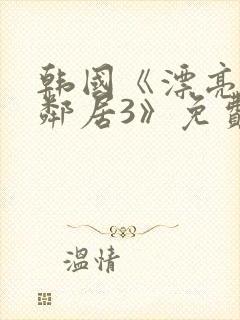 韩国《漂亮
邻居3》免費
溫情